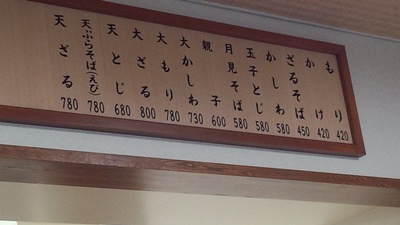 もり 420
かけ 420
ざるそば 450
かしわ 580
玉子とじ 580
月見そば 580
親子 600
大かしわ 730
大もり 780
大ざる 800
天とじ 680
天ぷらそば(えび) 780
天ざる 780